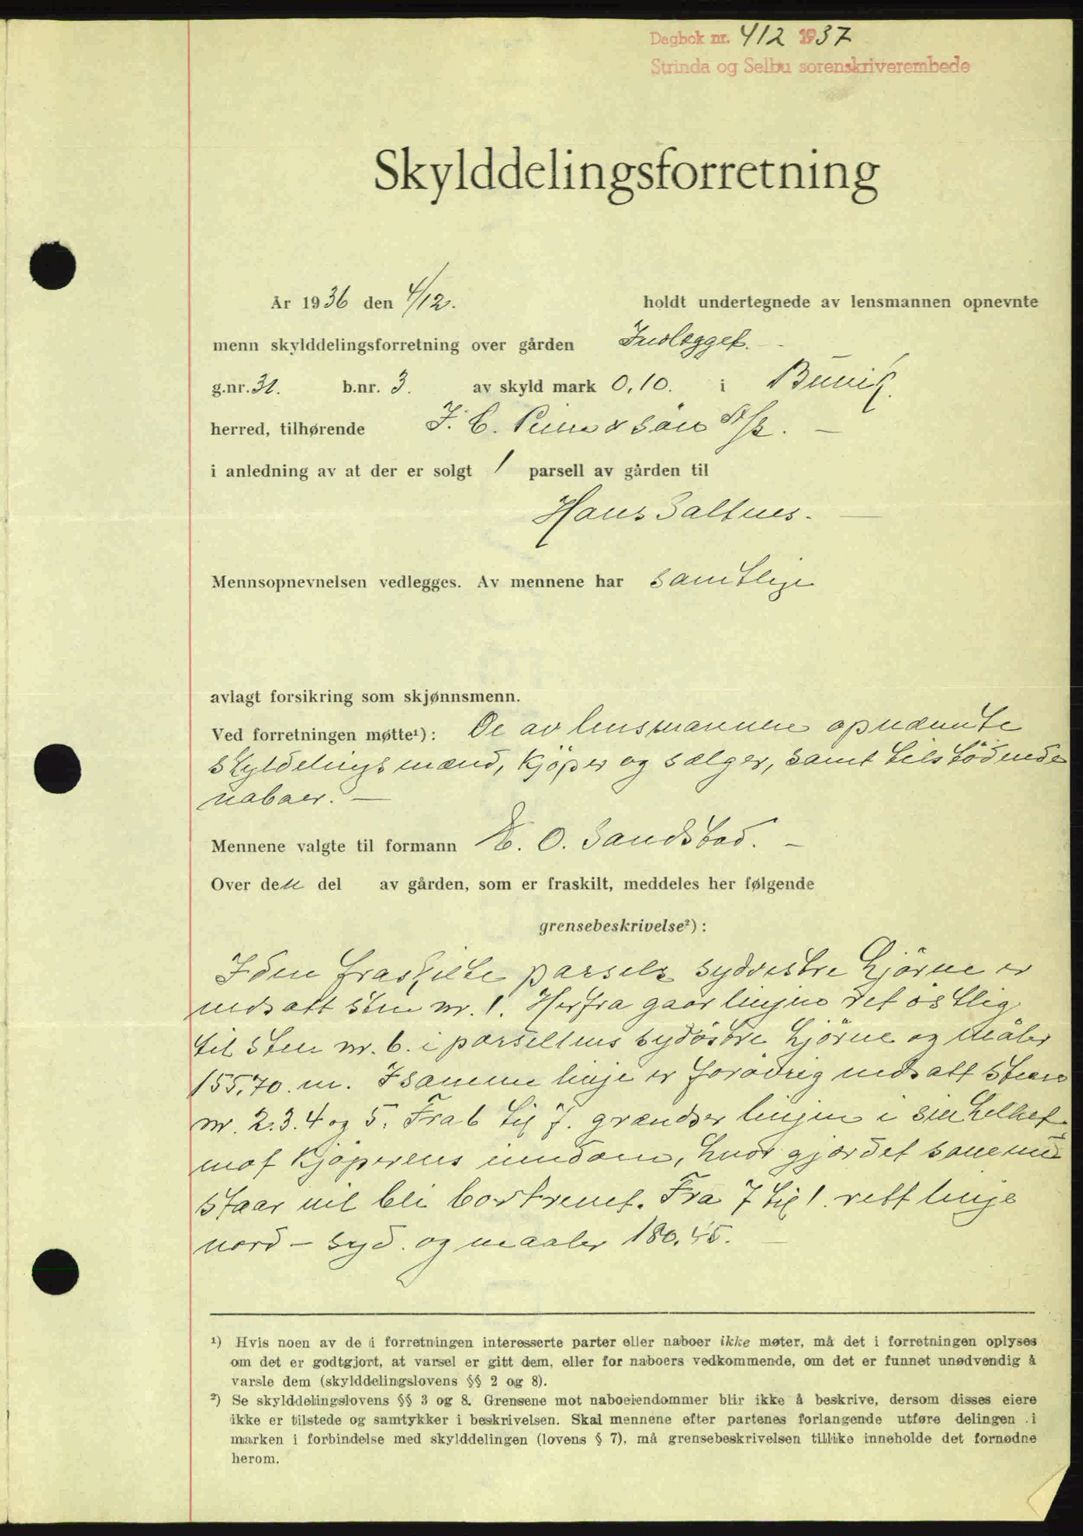 Dagbok nr. 412 1937
Strinda og Selbu sorenskriverembede
Skylddelingsforretning
År 1936 den 4/12. holdt undertegnede av lensmannen opnevnte
menn skylddelingsforretning over gården Indlegget.
g.nr. 31. b.nr. 3. av skyld mark 0,10. i Buvik
herred, tilhørende I. C. & Søn A/S. —
i anledning av at der er solgt 1 parsell av gården til
Hans Saltnes. —
Mennsopnevnelsen vedlegges. Av mennene har samtlige
avlagt forsikring som skjønnsmenn.
Ved forretningen møtte¹): De av lensmannen opnævnte
skyldelingsmænd, kjøper og sælger, samt tilstødende
naboer. —
Mennene valgte til formann O. Sandstad. —
Over den del av gården, som er fraskilt, meddeles her følgende
grensebeskrivelse²):
I den fraskilte parsels sydvestre hjørne er
nedsatt sten nr. 1. Herfra gaar linjen ret østlig
til sten nr. 6. i parsellens sydøstre hjørne og måler
155,70. m. I samme linje er forøvrig nedsatt stene
nr. 2. 3. 4 og 5. Fra 6 til 7. grændser linjen i sin helhet
mot kjøperens eiendom, hvor gjerdet som nu
staar vil bli bortrevet. Fra 7 til 1. rett linje
nord – syd. og maaler 180.45. —
¹) Hvis noen av de i forretningen interesserte parter eller naboer ikke møter, må det i forretningen oplyses
om det er godtgjort, at varsel er gitt dem, eller for naboers vedkommende, om det er funnet unødvendig å
varsle dem (skylddelingslovens §§ 2 og 8).
²) Se skylddelingslovens §§ 3 og 8. Grensene mot naboeiendommer blir ikke å beskrive, dersom disses eiere
ikke er tilstede og samtykker i beskrivelsen. Skal mennene efter partenes forlangende utføre delingen i
marken i forbindelse med skylddelingen (lovens § 7), må grensebeskrivelsen tillike inneholde det fornødne
herom.